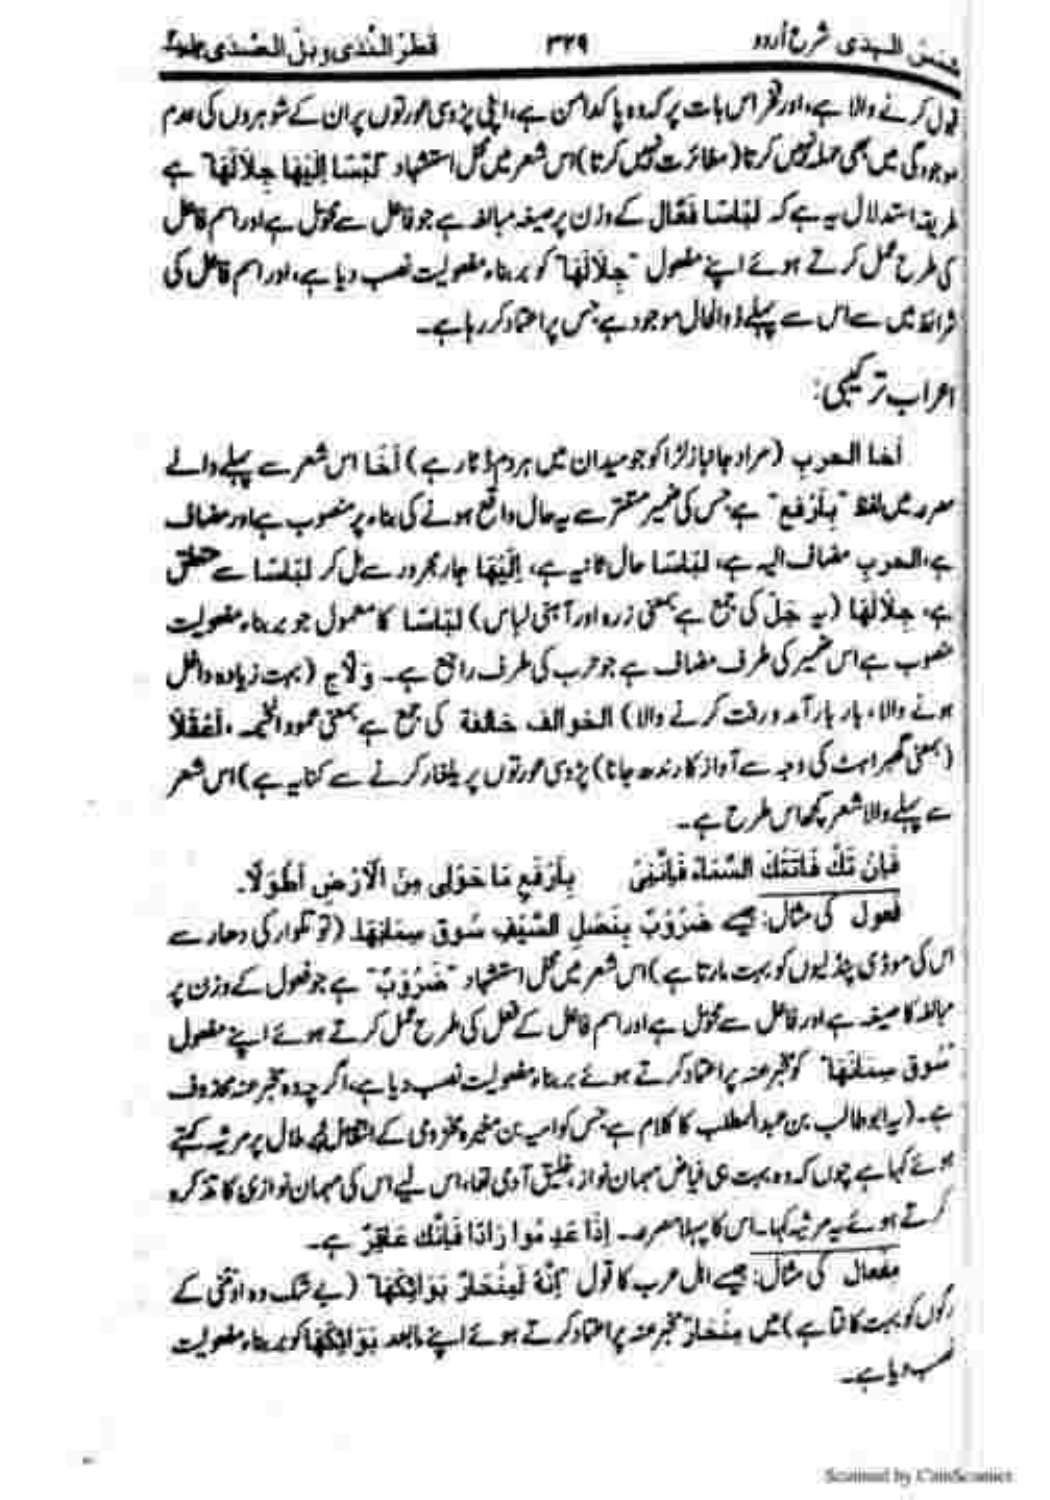 شمس الہدی شرح اُردو ۳۲۹ قطرُ النَّدٰی وبلُّ الصَّدٰی
قبول کرنے والا ہے، اور فخر اس بات پر کہ وہ پاکدامن ہے، اپنی پڑوسی عورتوں پر ان کے شوہروں کی عدم
موجودگی میں بھی حملہ نہیں کرتا (مطائرت نہیں کرتا) اس شعر میں محل استشہاد "لَبَّاسًا إِلَيْهَا جِلَالَهَا" ہے
طریقہ استدلال یہ ہے کہ لَبَّاسًا فَعَّال کے وزن پر صیغہ مبالغہ ہے جو فاعل سے محوّل ہے اور اسم فاعل
کی طرح عمل کرتے ہوئے اپنے مفعول "جِلَالَهَا" کو بربناء مفعولیت نصب دیا ہے، اور اسم فاعل کی
شرائط میں سے اس سے پہلے ذوالحال موجود ہے جس پر اعتماد کر رہا ہے۔
اعراب ترکیبی:
أخا الحربِ (مراد جانباز لڑاکو جو میدان میں ہر دم ڈٹا رہے) أخَا اس شعر سے پہلے والے
مصرعہ میں لفظ "بِأرْفَعِ" ہے جس کی ضمیر مستتر سے یہ حال واقع ہونے کی بناء پر منصوب ہے اور مضاف
ہے، الحربِ مضاف الیہ ہے، لَبَّاسًا حال ثانیہ ہے، إِلَيْهَا جار مجرور سے مل کر لَبَّاسًا سے متعلق
ہے، جِلَالَهَا (یہ جَلّ کی جمع ہے بمعنی زرہ اور آہنی لباس) لَبَّاسًا کا معمول جو بربناء مفعولیت
منصوب ہے اس ضمیر کی طرف مضاف ہے جو حرب کی طرف راجع ہے۔ وَلّاج (بہت زیادہ داخل
ہونے والا، بار بار آمد ورفت کرنے والا) الخوالف خالفة کی جمع ہے بمعنی عمود الخیمہ، أَعْقَلَا
(بمعنی گھبراہٹ کی وجہ سے آواز کا رندھ جانا) پڑوسی عورتوں پر یلغار کرنے سے کنایہ ہے) اس شعر
سے پہلے والا شعر کچھ اس طرح ہے۔
فَإِنْ تَكُ فَاتَتْكَ السَّمَاءُ فَإِنَّنِيْ بِأرْفَعِ مَا حَوْلِي مِنَ الْاَرْضِ اَطْوَلَا۔
فعول کی مثال: جیسے ضَرُوْبٌ بِنَصْلِ السَّيْفِ سُوقَ سِمَانِهَا۔ (تو تلوار کی دھار سے
اس کی موٹی پنڈلیوں کو بہت مارتا ہے) اس شعر میں محل استشہاد "ضَرُوْبٌ" ہے جو فعول کے وزن پر
مبالغہ کا صیغہ ہے اور فاعل سے محوّل ہے اور اسم فاعل کے فعل کی طرح عمل کرتے ہوئے اپنے مفعول
"سُوقَ سِمَانِهَا" کو مخبر عنہ پر اعتماد کرتے ہوئے بربناء مفعولیت نصب دیا ہے، اگرچہ وہ مخبر عنہ محذوف
ہے۔ (یہ ابوطالب بن عبدالمطلب کا کلام ہے جس کو امیہ بن مغیرہ مخزومی کے انتقال پر مرثیہ کہتے
ہوئے کہا ہے چوں کہ وہ بہت ہی فیاض مہمان نواز، خلیق آدمی تھا، اس لیے اس کی مہمان نوازی کا تذکرہ
کرتے ہوئے یہ مرثیہ کہا۔ اس کا پہلا مصرعہ إِذَا عَدِمُوا زَادًا فَإِنَّكَ عَاقِرٌ ہے۔
مفعال کی مثال: جیسے اہل عرب کا قول "إِنَّهُ لَمِنْحَارٌ بَوَائِكَهَا" (بے شک وہ اونٹنی کے
رگوں کو بہت کاٹتا ہے) میں مِنْحَارٌ مخبر عنہ پر اعتماد کرتے ہوئے اپنے مابعد بَوَائِكَهَا کو بربناء مفعولیت
نصب دیا ہے۔
Scanned by CamScanner